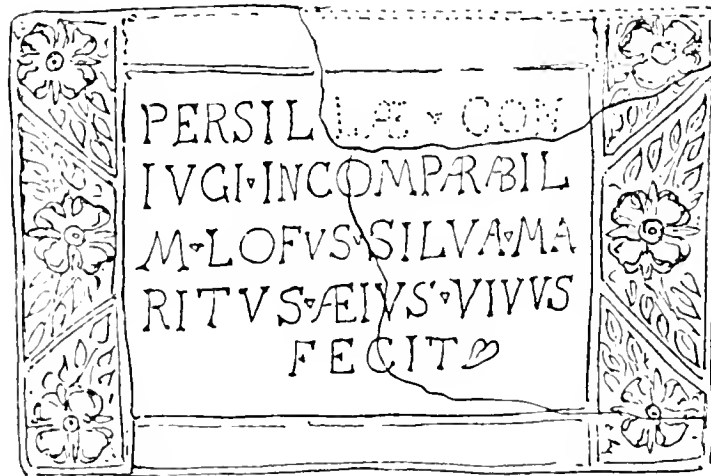 PERSILLÆ ▿ CON
IVGI▿INCOMPARABIL
M▿LOFVS▿SILVA▿MA
RITVS▿ÆIVS▿VIVVS
FECIT❧